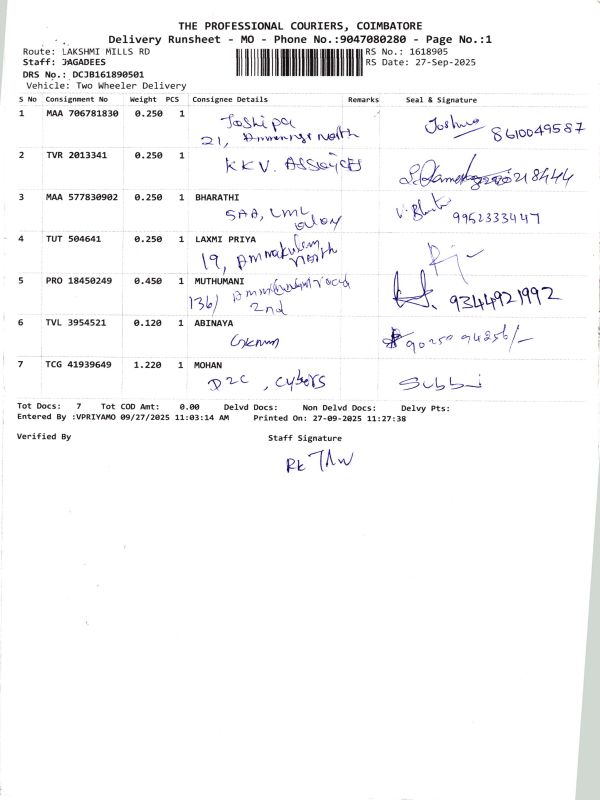 THE PROFESSIONAL COURIERS, COIMBATORE
Delivery Runsheet - MO - Phone No.:9047080280 - Page No.:1
Route: LAKSHMI MILLS RD RS No.: 1618905
Staff: JAGADEES RS Date: 27-Sep-2025
DRS No.: DCJB161890501
Vehicle: Two Wheeler Delivery
S No Consignment No Weight PCS Consignee Details Remarks Seal & Signature
1 MAA 706781830 0.250 1 Joshipa Joshua 8610049587
21, north
2 TVR 2013341 0.250 1 KKV. 
3 MAA 577830902 0.250 1 BHARATHI 9952333447
SAA, LML
4 TUT 504641 0.250 1 LAXMI PRIYA
19, Ammakulam
north
5 PRO 18450249 0.450 1 MUTHUMANI 9344921992
136/ 2nd
6 TVL 3954521 0.120 1 ABINAYA
7 TCG 41939649 1.220 1 MOHAN Subbi
D2C, Cybers
Tot Docs: 7 Tot COD Amt: 0.00 Delvd Docs: Non Delvd Docs: Delvy Pts:
Entered By :VPRIYAMO 09/27/2025 11:03:14 AM Printed On: 27-09-2025 11:27:38
Verified By Staff Signature